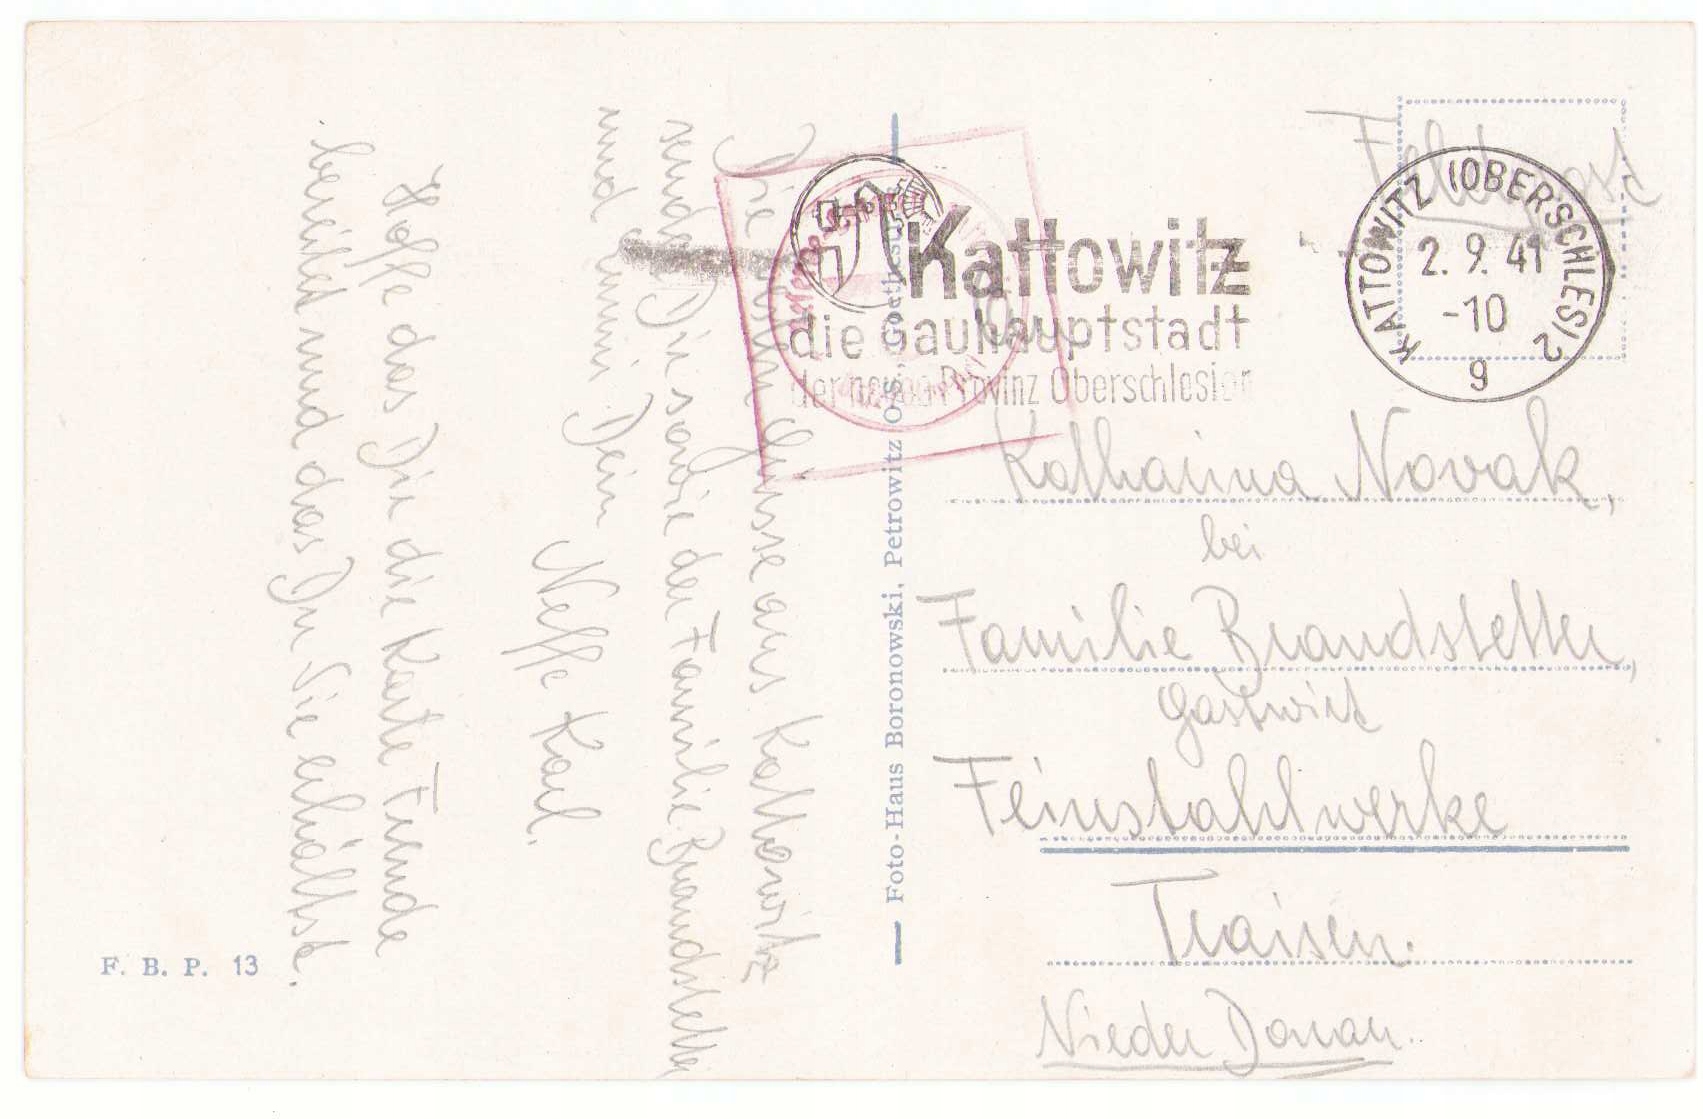 Die besten Grüsse aus Kattowitz
sendet Dir sowie der Familie Brandstetter
und Dein
Neffe Karl.
Hoffe das Dir die Karte Freude
bereitet und das Du Sie erhältst.
F. B. P. 13
Foto-Haus Boronowski, Petrowitz O.-S.,
Kattowitz
die Gauhauptstadt
der neuen Provinz Oberschlesien
Feldpost
KATTOWITZ (OBERSCHLES) 2
2. 9. 41
-10
g
Katharina Novak,
bei
Familie Brandstetter,
Gastwirt
Feinstahlwerke
Traisen.
Nieder Donau.